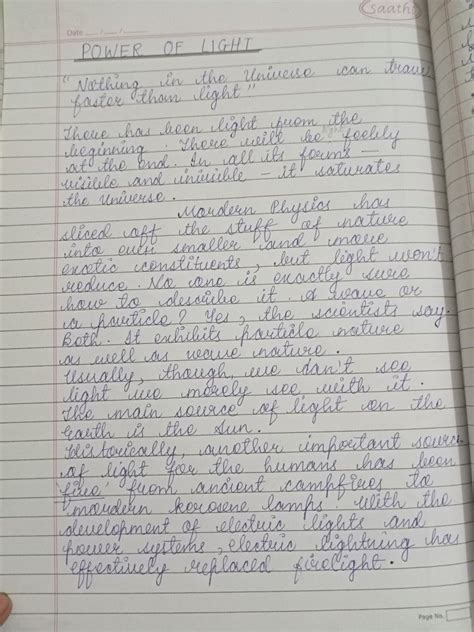 saathi
Date ___/___/___
POWER OF LIGHT
"Nothing in the Universe can trave
faster than light"
There has been light from the
beginning. There will be feebly
at the end. In all its forms –
visible and invisible – it saturates
the Universe.
Mordern Physics has
sliced off the stuff of nature
into even smaller and more
exotic constituents, but light won't
reduce. No one is exactly sure
how to describe it. A wave or
a particle? Yes, the scientists say.
Both. It exhibits particle nature
as well as wave nature.
Usually, though, we can't see
light we merely see with it.
The main source of light on the
Earth is the Sun.
Historically, another important source
of light for the humans has been
fire from ancient campfires to
mordern kerosene lamps. With the
development of electric lights and
power systems, electric lightning has
effectively replaced firelight.
Page No.